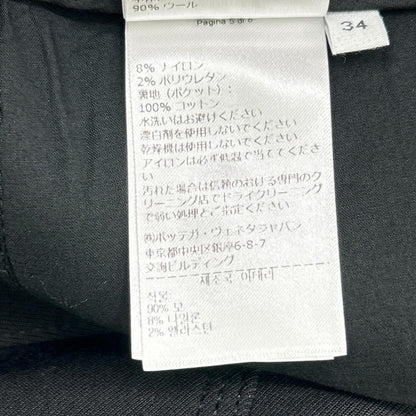 90% ウール
Pagina 5 di 6
34
8% ナイロン
2% ポリウレタン
裏地（ポケット）：
100% コットン
水洗いはお避けください
漂白剤を使用しないでください
乾燥機は使用しないでください
アイロンは必ず低温で当ててく
ださい
汚れた場合は信頼のおける専門のク
リーニング店でドライクリーニング
で弱い処理とご指定ください
㈱ボッテガ・ヴェネタジャパン
東京都中央区銀座6-8-7
交詢ビルディング
제조국 이태리
직물:
90% 모
8% 나일론
2% 엘라스탄